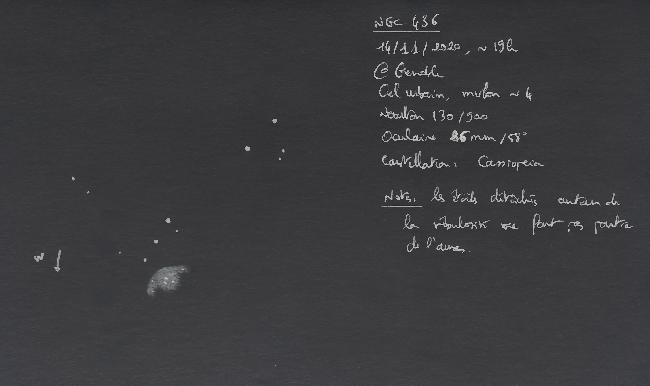 NGC 436
14/11/2020, ~ 19h
@ Grenoble
Ciel urbain, mvlon ~ 4
Newton 130/900
Oculaire 25mm/55°
Constellation: Cassiopeia
Note: les étoiles détachées autour de
la nébulosité ne font pas partie
de l'amas.
W